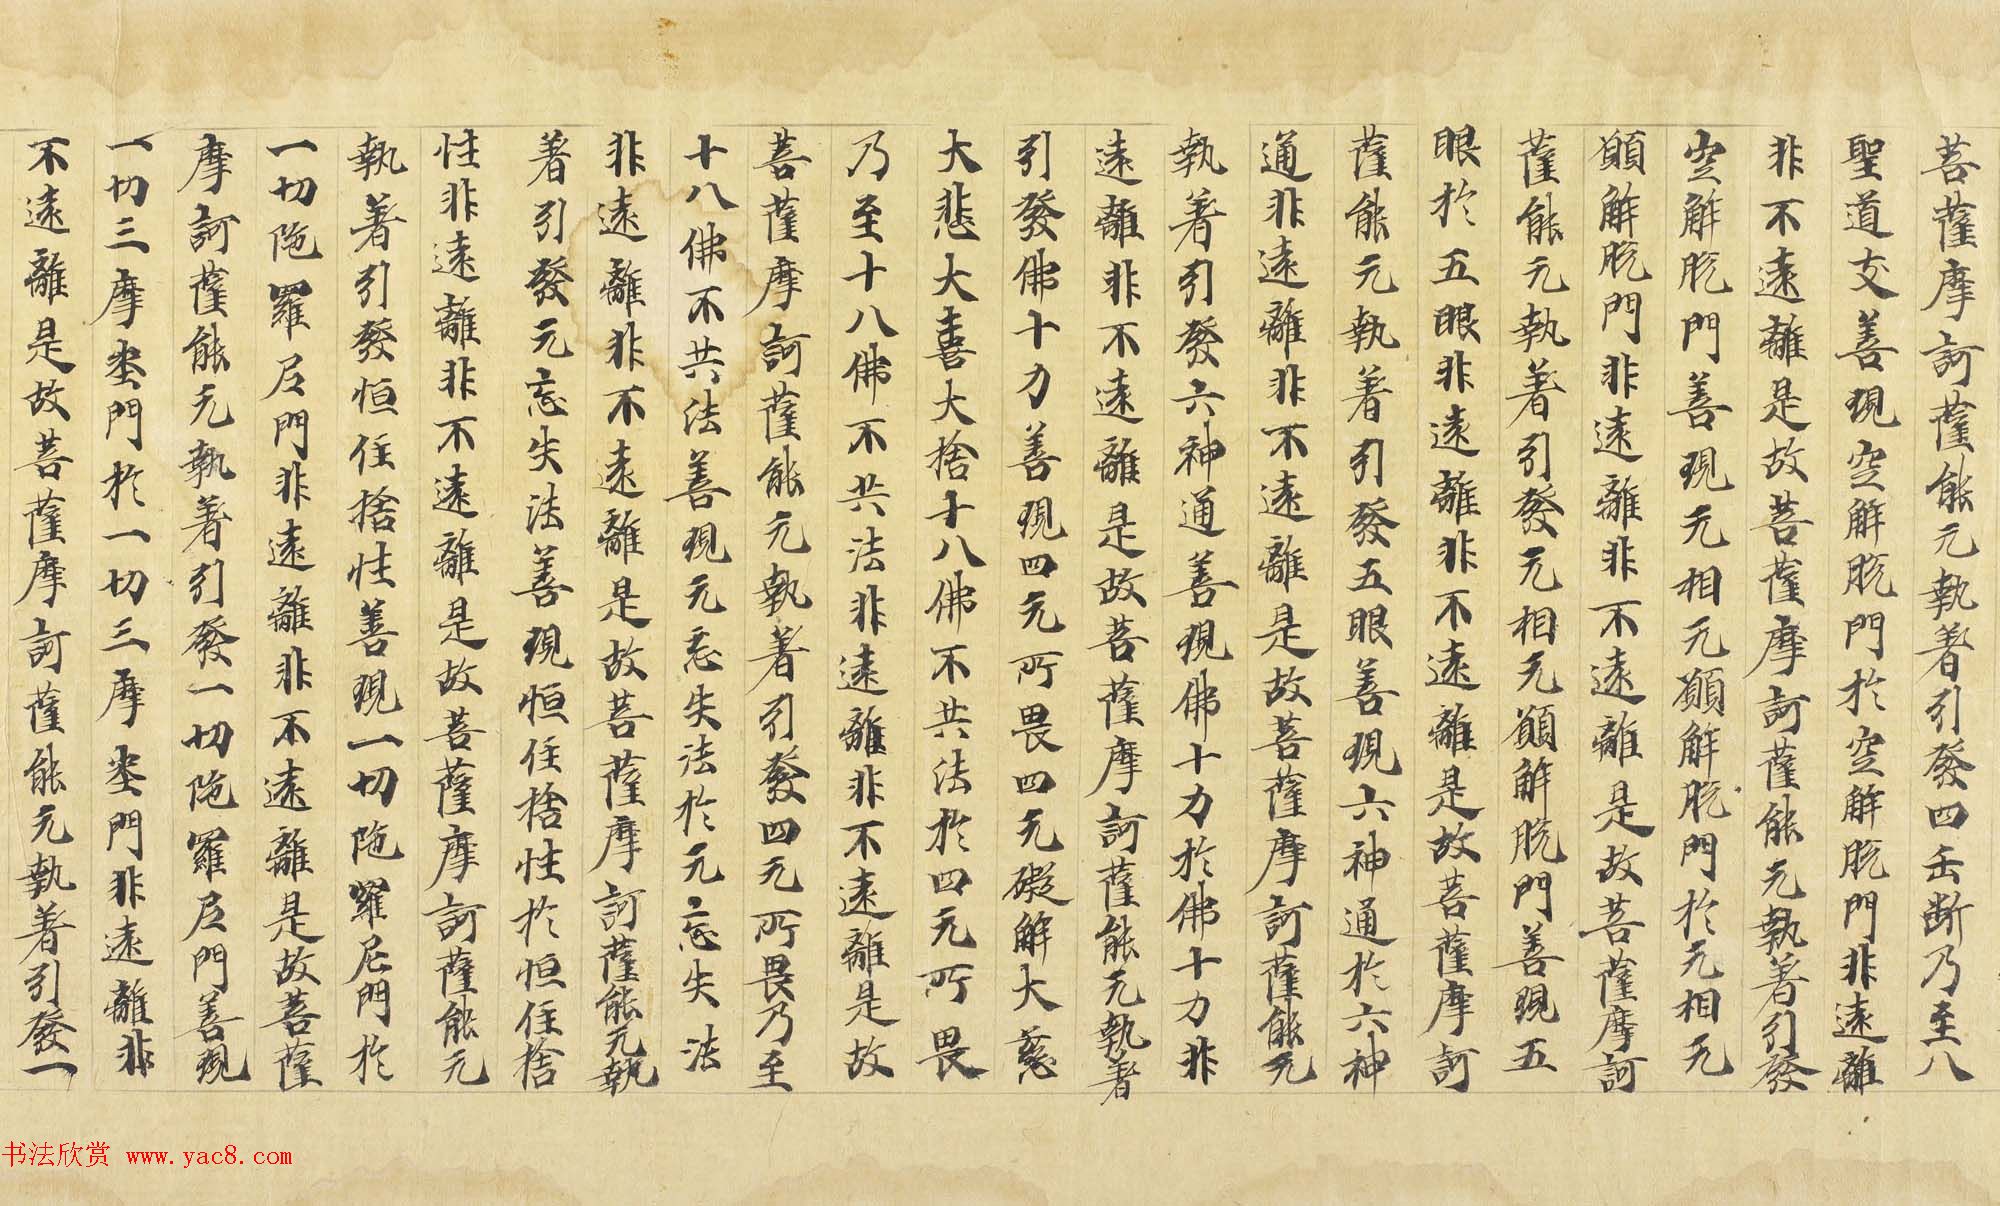 菩薩摩訶薩能无執著引發四正斷乃至八
聖道支善現空解脫門於空解脫門非遠離
非不遠離是故菩薩摩訶薩能无執著引發
空解脫門善現无相无願解脫門於无相无
願解脫門非遠離非不遠離是故菩薩摩訶
薩能无執著引發无相无願解脫門善現五
眼於五眼非遠離非不遠離是故菩薩摩訶
薩能无執著引發五眼善現六神通於六神
通非遠離非不遠離是故菩薩摩訶薩能无
執著引發六神通善現佛十力於佛十力非
遠離非不遠離是故菩薩摩訶薩能无執著
引發佛十力善現四无所畏四无礙解大慈
大悲大喜大捨十八佛不共法於四无所畏
乃至十八佛不共法非遠離非不遠離是故
菩薩摩訶薩能无執著引發四无所畏乃至
十八佛不共法善現无忘失法於无忘失法
非遠離非不遠離是故菩薩摩訶薩能无執
著引發无忘失法善現恒住捨性於恒住捨
性非遠離非不遠離是故菩薩摩訶薩能无
執著引發恒住捨性善現一切陁羅尼門於
一切陁羅尼門非遠離非不遠離是故菩薩
摩訶薩能无執著引發一切陁羅尼門善現
一切三摩地門於一切三摩地門非遠離非
不遠離是故菩薩摩訶薩能无執著引發一
书法欣赏 www.yac8.com